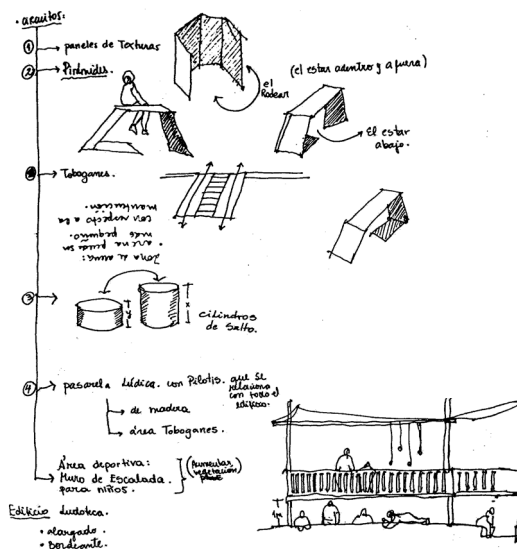 ① → paneles de Texturas
② → Pirámides.
el
Rodear
(el estar adentro y afuera)
El estar
abajo.
→ Toboganes.
zona de arena:
• arena puede ser
más pequeña.
con respecto a la
mantención.
③ →
cilindros
de Salto.
x
④ → pasarela Lúdica. con Pilotis. que se
relaciona
con todo el
edificio.
→ de madera
→ área Toboganes.
Área deportiva:
→ Muro de Escalada.
para niños.
(Aumentar
vegetación)
Edificio Ludoteca.
• alargado.
• bordeante.